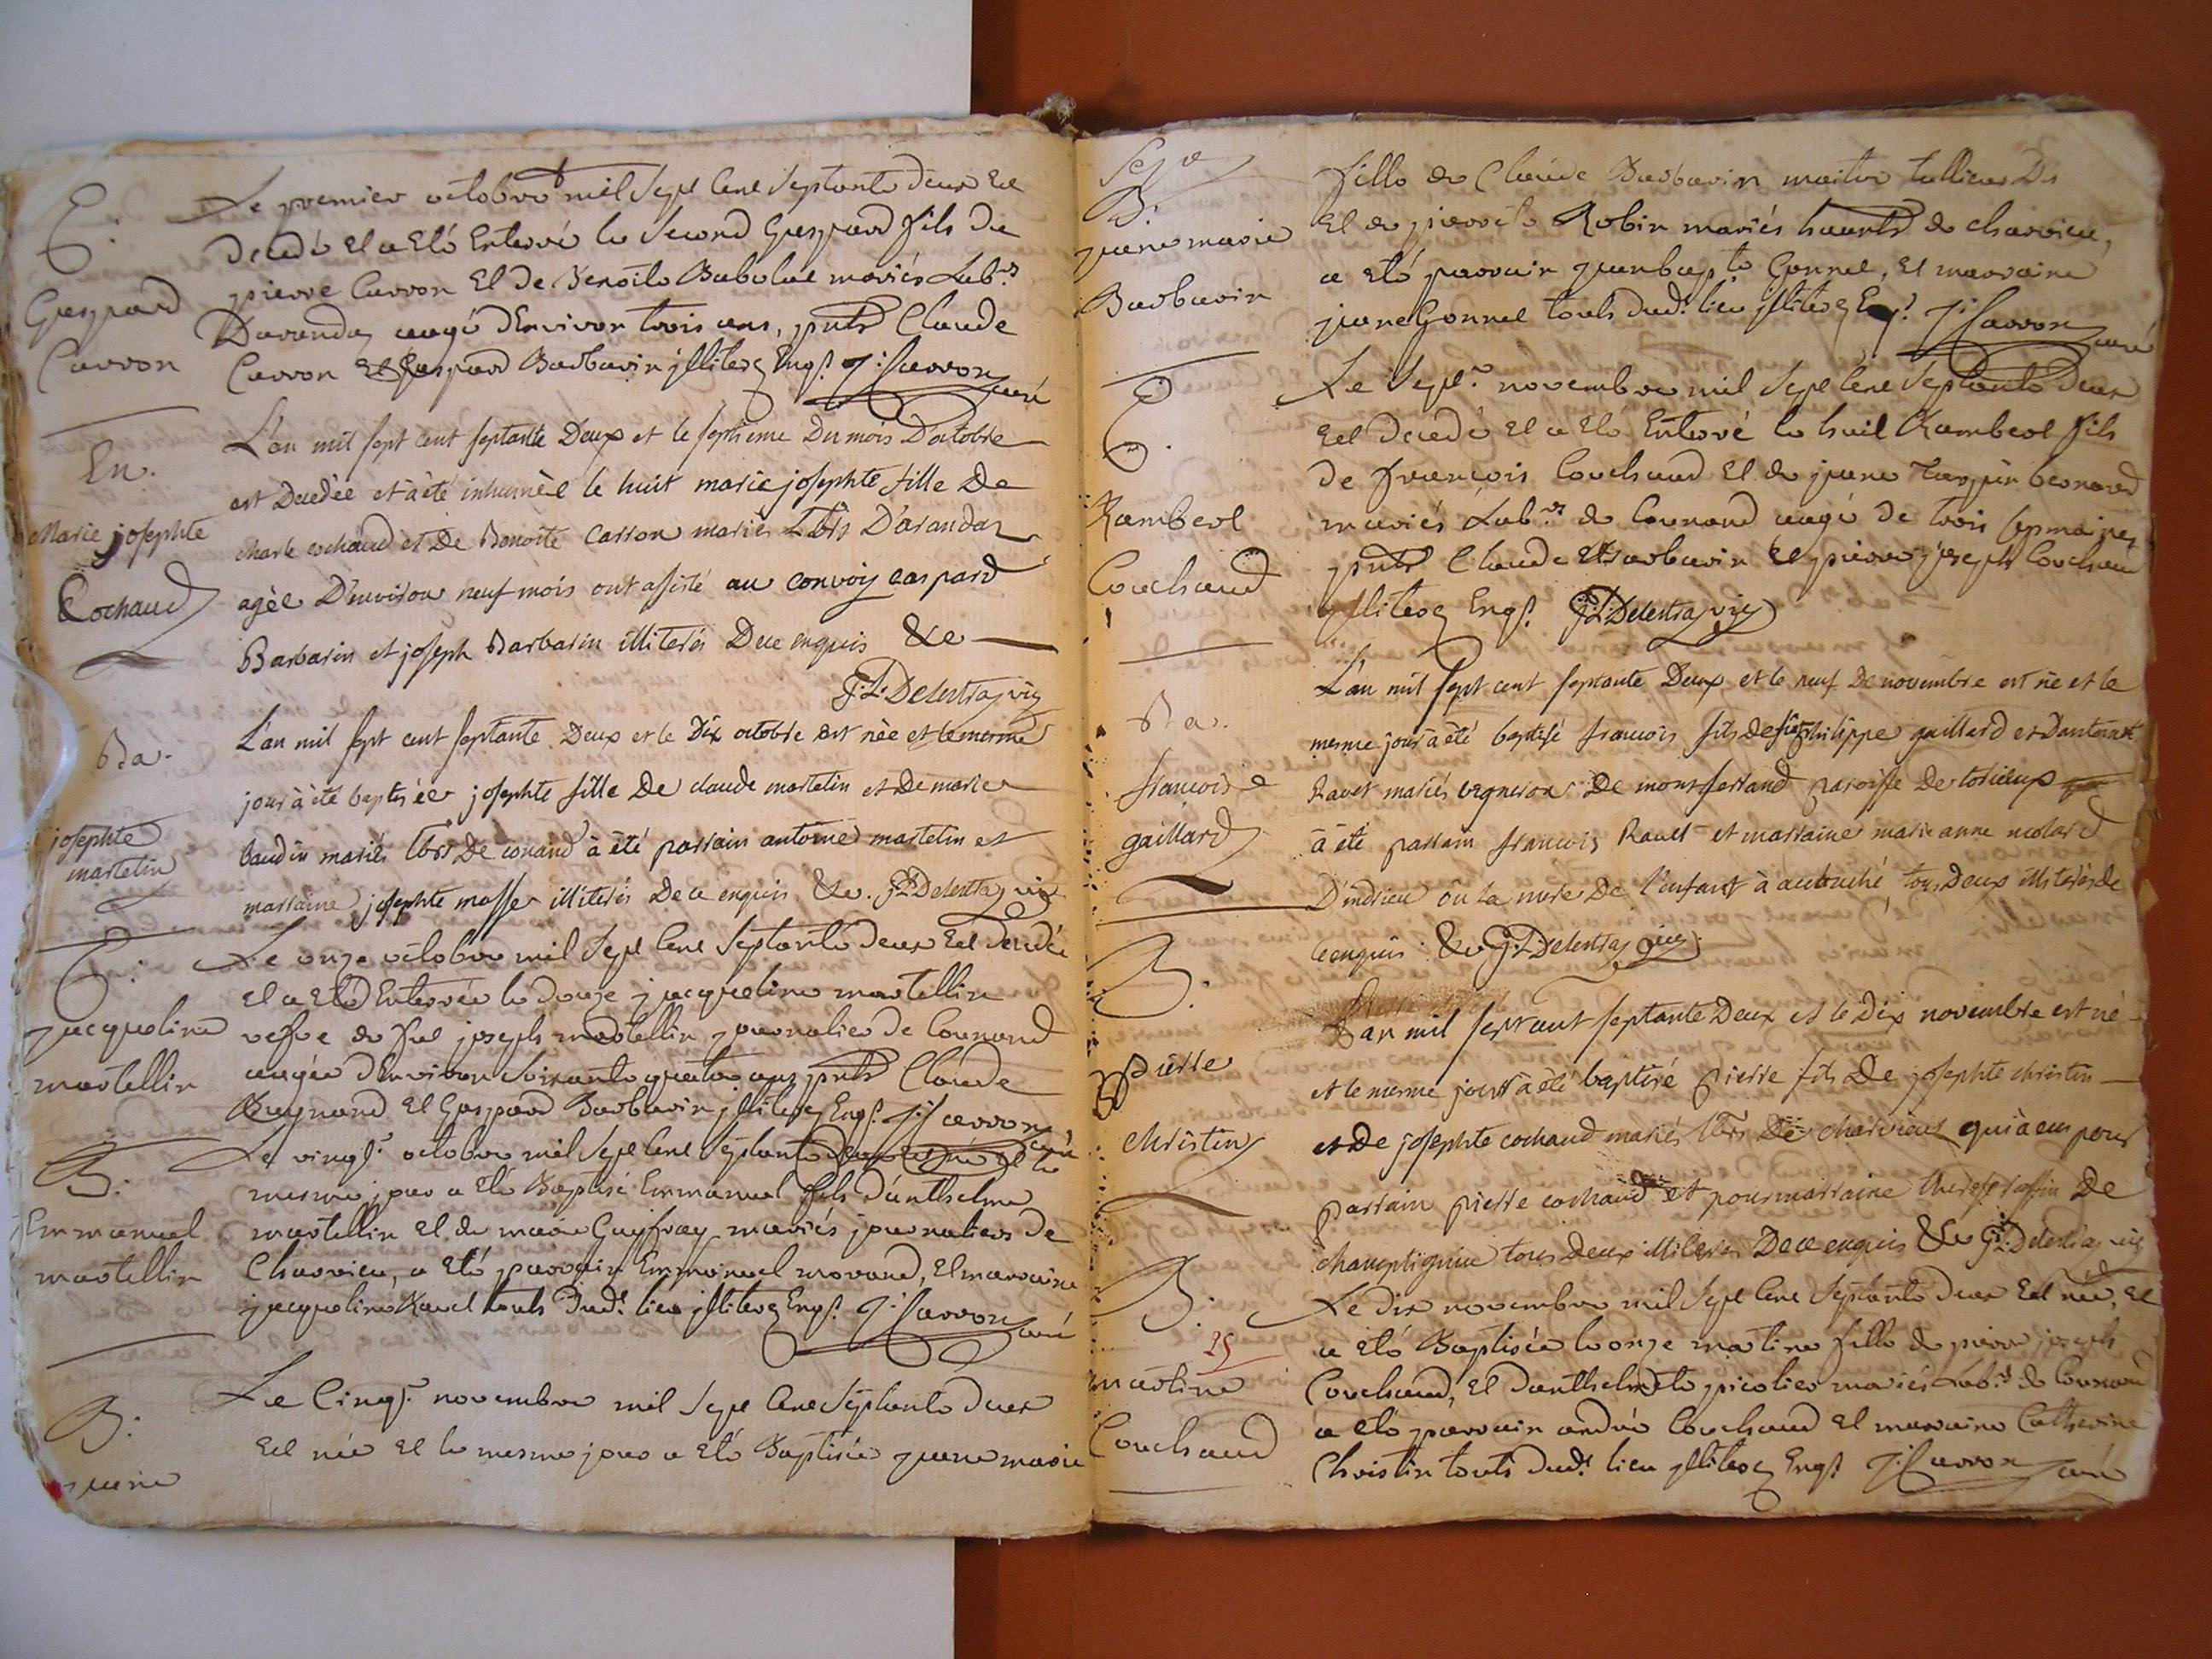 E.
Gaspard
Carron
Le premier octobre mil sept cent septante deux est
decedé et a eté enterré le second Gaspard fils de
pierre Carron et de Benoite Babolat mariés Labrs
Darandaz aagé denviron trois ans, pnts Claude
Carron et Gaspard Barbarin illiteres Enqs. J: Carron curé
En.
Marie josephte
Cochaud
L'an mil sept cent septante Deux et le septieme Du mois D'octobre
est Decedée et a été inhumèe le huit marie josephte fille De
charle cochaud et De Benoite Carron mariés Lbrs D'arandaz
agèe D'environ neuf mois ont assisté au convoy caspard
Barbarin et joseph Barbarin illiterés Dece enquis &c
J:L: Delestra vic
Ba.
josephte
martelin
L'an mil sept cent septante Deux et le Dix octobre est nèe et le mesme
jour à été baptisèe josephte fille De claude martelin et De marie
baudin mariés lbrs De conand à été parrain antoine martelin et
marraine josephte masse illiterés De ce enquis &c. JL: Delestra vic
E:
jacqueline
martellin
Le onze octobre mil sept cent septante deux est decedée
et a eté enterrée le douze jacqueline martellin
vefve de feu joseph martellin journalier de Connand
aagée denviron soixante quatre ans pnts Claude
Reynand et Gaspard Barbarin illiteres Enqs. J: Carron curé
B:
Emmanuel
martellin
Le vingt octobre mil sept cent septante deux est né et le
mesme jour a eté Baptisé Emmanuel fils danthelme
martellin et de marie Guyfray mariés journaliers de
Charvieu, a eté parrain Emmanuel morand, et marraine
jacqueline Ravet touts dud. lieu illiteres Enqs. J: Carron curé
B:
jeane
Le Cinq novembre mil sept cent septante deux
est née et le mesme jour a eté Baptisée jeane marie
B:
jeane marie
Barbarin
fille de Claude Barbarin maitre tallieur Ds
et de pierrete Robin mariés hants de charvieu,
a eté parrain jean bapte Gonnet, et marraine
jeane Gonnet touts dud. lieu illiteres Enqs. J: Carron curé
E.
Rambert
Couchaud
Le sept novembre mil sept cent septante deux
est decedé et a eté Enterré le huit Rambert fils
de françois Couchaud et de jeane Tarpin bernard
mariés Labrs de Connand aagé de trois sepmaines,
pnts Claude Barbarin et pierre joseph Couchau
illiteres Enqs. J:L: Delestra vic
Ba.
francois
gaillard
L'an mil sept cent septante Deux et le neuf De novembre est nè et le
mesme jour à été baptisé francois fils de philippe gaillard et Dantoinet
Ravet mariés vigneron De montferrand paroisse De torcieux
à été parrain francois Ravet et marraine marie anne molard
D'indrieu où la mere De l'enfant à accouché, tous Deux illiterés de
ce enquis &c JL: Delestra vic
B.
pierre
christin
L'an mil sept cent septante Deux et le Dix novembre est né
et le mesme jour à été baptisé pierre fils De josephte christin
et De josephte cochaud mariés lbrs De charvieux qui à eu pour
parrain pierre cochaud et pour marraine therese De
champtignieu tous Deux illiterés De ce enquis &c JL: Delestra vic
B:
25
martine
Couchaud
Le dix novembre mil sept cent septante deux est née, et
a eté Baptisée le onze martine fille de pierre joseph
Couchaud, et danthelmete picolier mariés Labrs de Connand
a eté parrain andré Couchaud et marraine Catherine
Christin touts dud. lieu illiteres Enqs. J: Carron curé